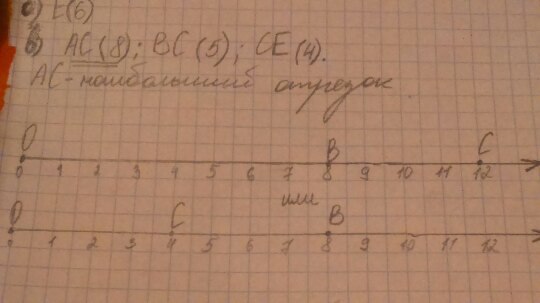 а) E(6)
в) AC(8); BC(5); CE(4).
AC - наибольший отрезок
O B C
0 1 2 3 4 5 6 7 8 9 10 11 12
или
O C B
0 1 2 3 4 5 6 7 8 9 10 11 12